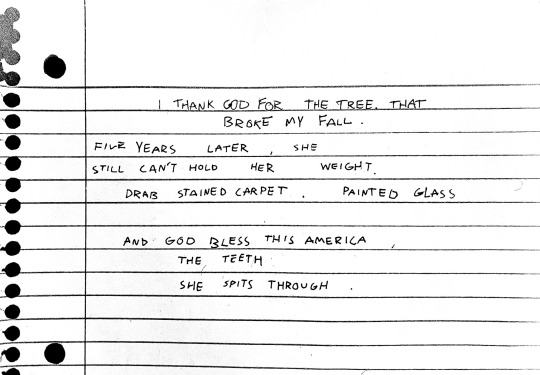 I THANK GOD FOR THE TREE. THAT
BROKE MY FALL.
FIVE YEARS LATER, SHE
STILL CAN'T HOLD HER WEIGHT.
DRAB STAINED CARPET. PAINTED GLASS
AND GOD BLESS THIS AMERICA,
THE TEETH
SHE SPITS THROUGH.